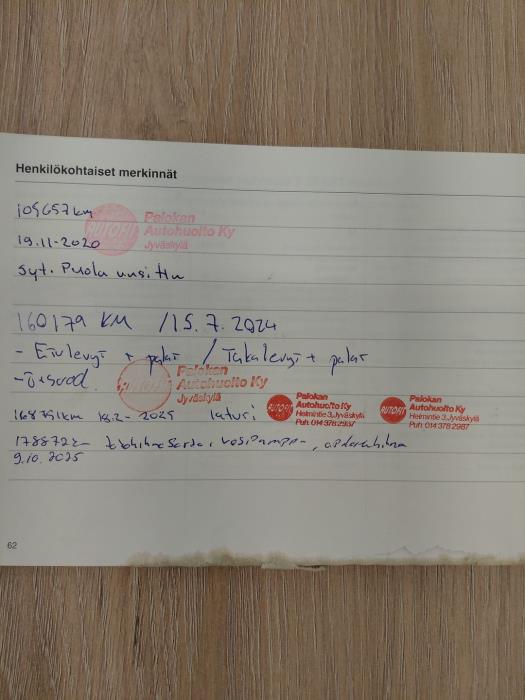 Henkilökohtaiset merkinnät
105657km
AUTOFIT Palokan Autohuolto Ky Jyväskylä
19.11-2020
syt. Puola uusittu
160179 KM /15.7.2024
- Etulevyt + palat / Takalevyt + palat
AUTOFIT Palokan Autohuolto Ky Jyväskylä
km 18.2-2025 laturi
AUTOFIT Palokan Autohuolto Ky Helmintie 3, Jyväskylä Puh. 014 378 2987
AUTOFIT Palokan Autohuolto Ky Helmintie 3, Jyväskylä Puh. 014 378 2987
178872
9.10.2025
62